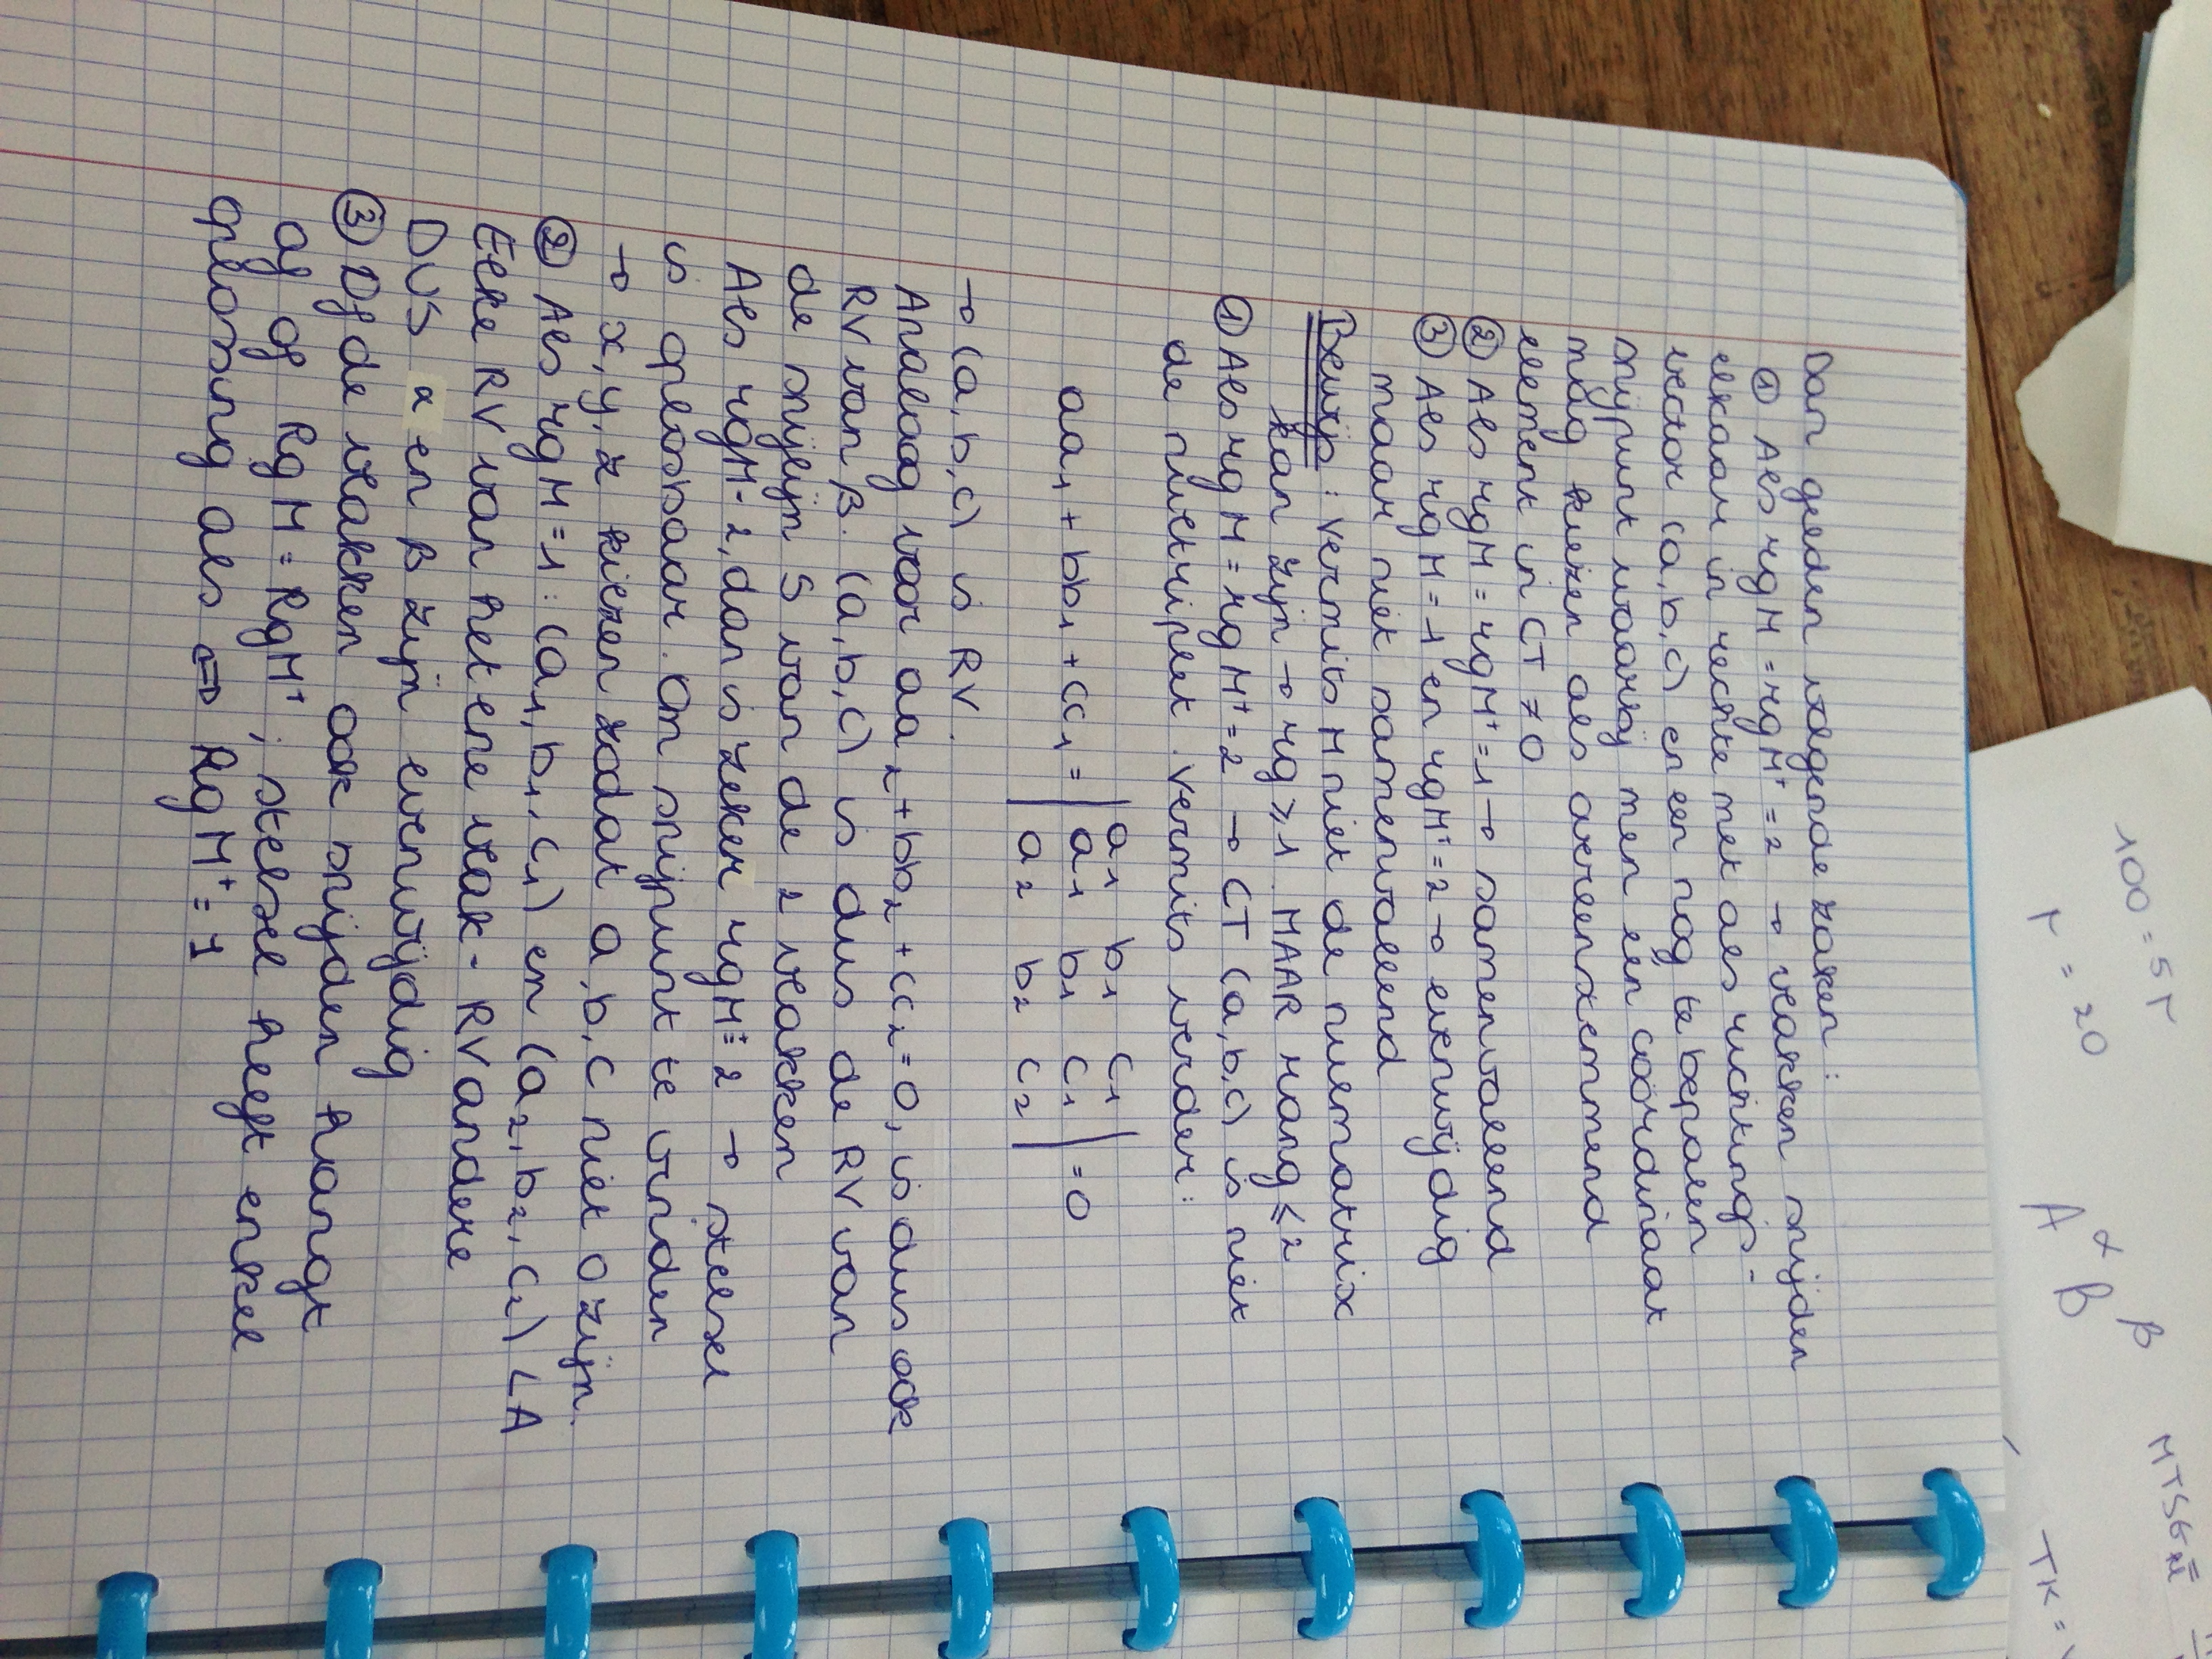 Dan gelden volgende zaken :
① Als rg M = rg M⁺ = 2 → vlakken snijden
elkaar in rechte met als richting-
vector (a, b, c) en een nog te bepalen
snijpunt waarbij men een coördinaat
mag kiezen als overeenkomend
element in CT ≠ 0
② Als rg M = rg M⁺ = 1 → samenvallend
③ Als rg M = 1 en rg M⁺ = 2 → evenwijdig
maar niet samenvallend
Bewijs : Vermits M niet de nulmatrix
kan zijn → rg ≥ 1. MAAR rang ≤ 2
① Als rg M = rg M⁺ = 2 → CT (a, b, c) is niet
de nultriplet. Vermits verder :
aa₁ + bb₁ + cc₁ = | a₁ b₁ c₁ |
| a₁ b₁ c₁ | = 0
| a₂ b₂ c₂ |
→ (a, b, c) is RV.
Analoog voor aa₂ + bb₂ + cc₂ = 0, is dus ook
RV van β. (a, b, c) is dus de RV van
de snijlijn S van de 2 vlakken
Als rg M = 2, dan is zeker rg M⁺ = 2 → stelsel
is oplosbaar. Om snijpunt te vinden
→ x, y, z kiezen zodat a, b, c niet 0 zijn.
② Als rg M = 1 : (a₁, b₁, c₁) en (a₂, b₂, c₂) LA
Elke RV van het ene vlak = RV andere
DUS α en β zijn evenwijdig
③ Of de vlakken ook snijden hangt
af of Rg M = Rg M⁺ ; stelsel heeft enkel
oplossing als ⇔ Rg M⁺ = 1
100 = 5r
r = 20
A α B β
TK =